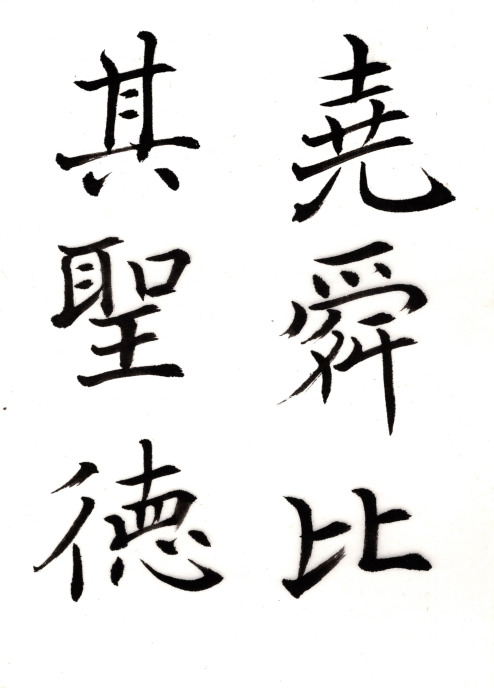 堯舜比
其聖徳